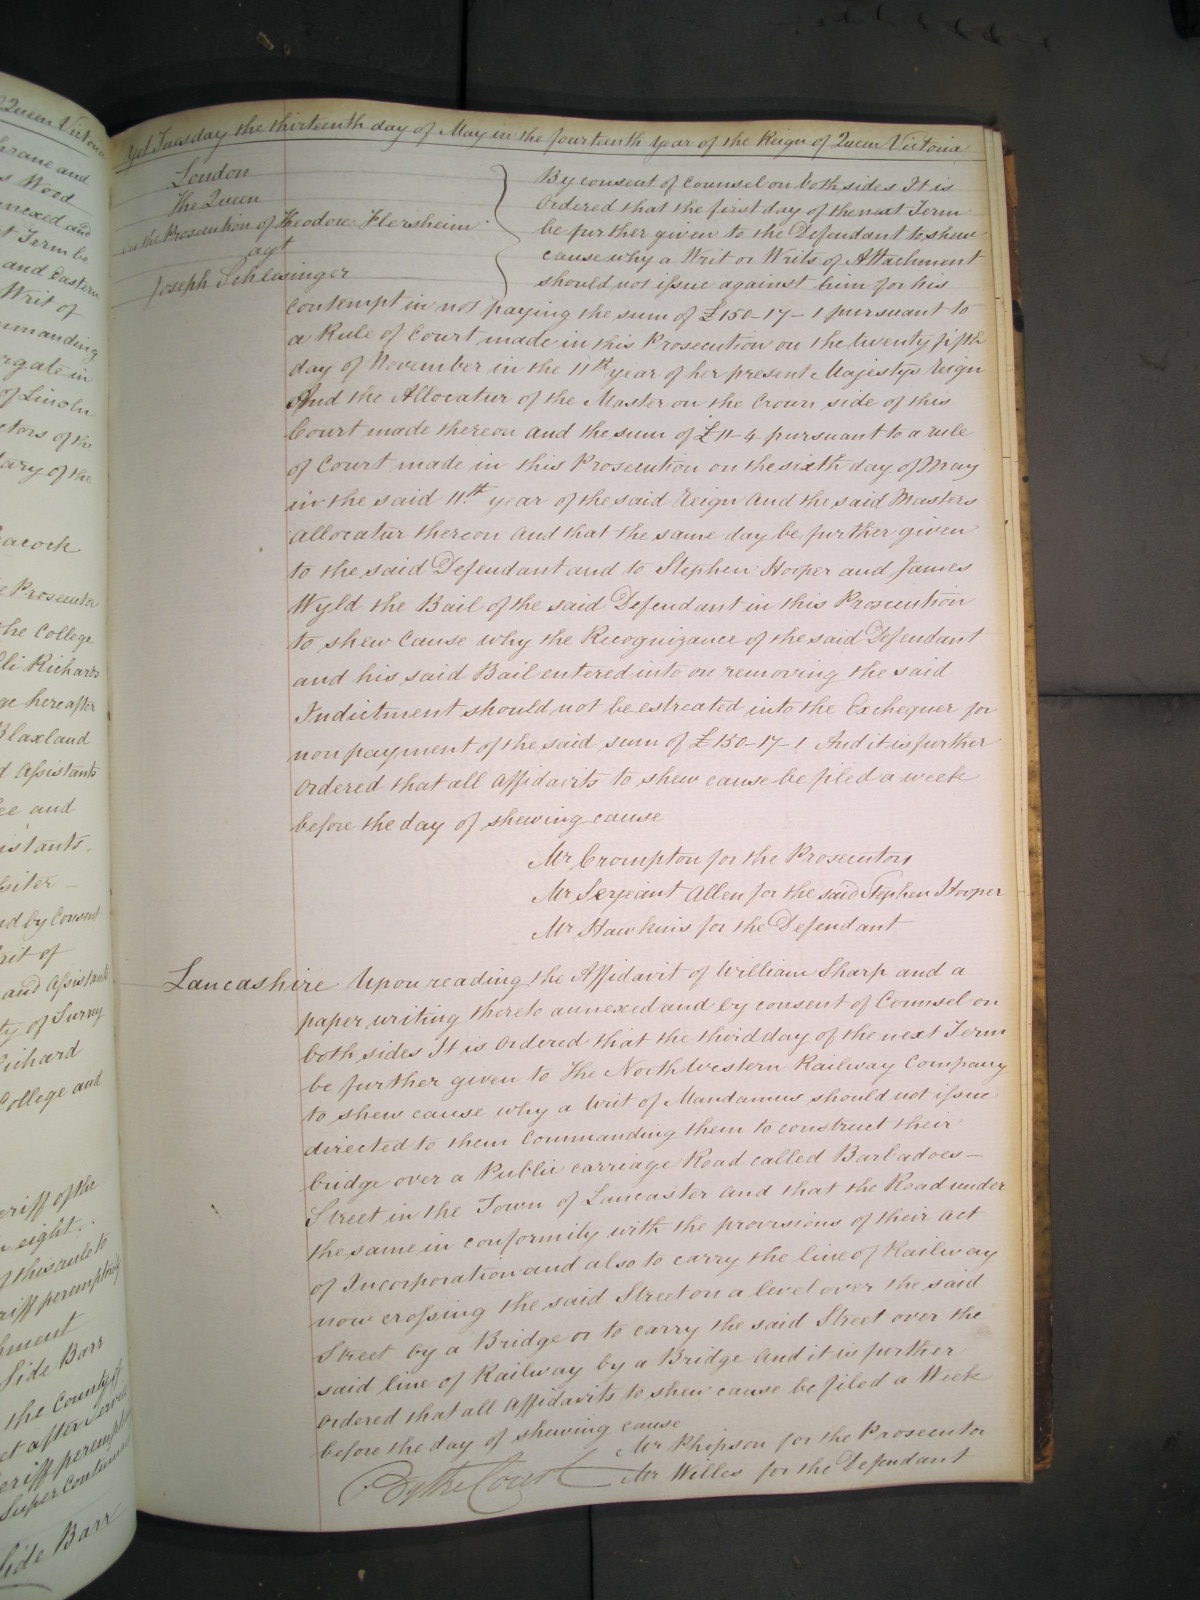 Yet Tuesday the thirteenth day of May in the fourteenth year of the Reign of Queen Victoria
London
The Queen
on the Prosecution of Theodore Flersheim
agt
Joseph Schlesinger
By consent of Counsel on both sides It is
Ordered that the first day of the next Term
be further given to the Defendant to shew
cause why a Writ or Writs of Attachment
should not issue against him for his
contempt in not paying the sum of £150-17-1 pursuant to
a Rule of Court made in this Prosecution on the twenty fifth
day of November in the 11th year of her present Majestys Reign
And the Allocatur of the Master on the Crown side of this
Court made thereon and the sum of £11-4 pursuant to a rule
of Court made in this Prosecution on the sixth day of May
in the said 11th year of the said Reign and the said Masters
allocatur thereon And that the same day be further given
to the said Defendant and to Stephen Hooper and James
Wyld the Bail of the said Defendant in this Prosecution
to shew cause why the Recognizance of the said Defendant
and his said Bail entered into on removing the said
Indictment should not be estreated into the Exchequer for
non payment of the said sum of £150-17-1 And it is further
Ordered that all affidavits to shew cause be filed a week
before the day of shewing cause
Mr Crompton for the Prosecutors
Mr Serjeant Allen for the said Stephen Hooper
Mr Hawkins for the Defendant
Lancashire Upon reading the Affidavit of William Sharp and a
paper writing thereto annexed and by consent of Counsel on
both sides It is Ordered that the third day of the next Term
be further given to The North Western Railway Company
to shew cause why a Writ of Mandamus should not issue
directed to them Commanding them to construct their
bridge over a Public carriage Road called Barbadoes-
Street in the Town of Lancaster and that the Road under
the same in conformity with the provisions of their act
of Incorporation and also to carry the line of Railway
now crossing the said Street on a level over the said
Street by a Bridge or to carry the said Street over the
said line of Railway by a Bridge And it is further
Ordered that all Affidavits to shew cause be filed a Week
before the day of shewing cause
Mr Phipson for the Prosecutor
Mr Willes for the Defendant
By the Court